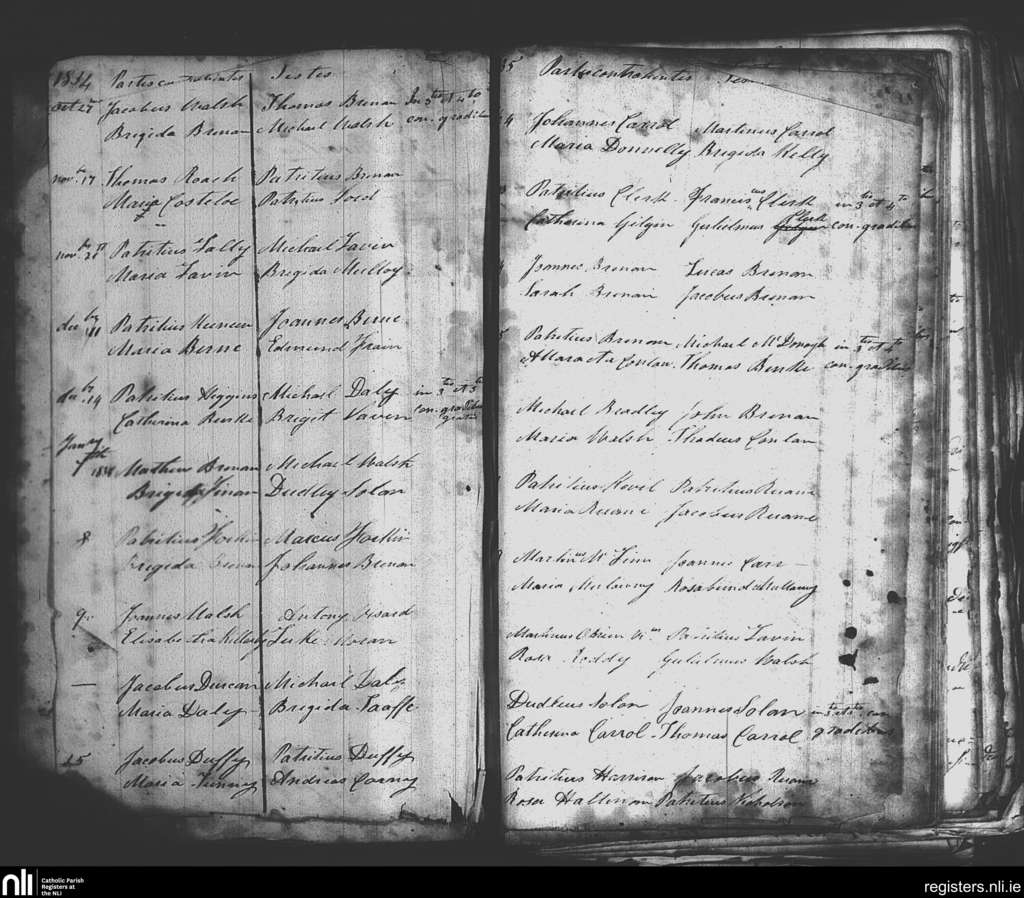 1814 Partes contrahentes Testes
Oct 27 Jacobus Walsh Thomas Brenan In 3tio et 4to
Brigida Brenan Michael Walsh con. gradibus
novbr 17 Thomas Roach Patritius Brenan
Maria Costeloe Patritius
novbr 21 Patritius Lally Michael Lavin
Maria Lavin Brigida Mulloy
decbr 11 Patritius Joannes Birne
Maria Birne Edmund
decbr 14 Patritius Higgins Michael Daly in 3tio et
Catherina Burke Brigit Lavin con. gradibus
Jany Mathew Brenan Michael Walsh
Brigida Dudley Solan
8 Patritius Horkin Marcus Horkin
Brigida Brenan Johannes Brenan
9 Joannes Walsh Antony
Elisabetha Luke Moran
— Jacobus Duncan Michael Daly
Maria Daly Brigida Taaffe
15 Jacobus Duffy Patritius Duffy
Maria Andreas Carney
5 Partes contrahentes Tes
4 Johannes Carrol Martinus Carrol
Maria Donnelly Brigida Kelly
Patritius Clerk Francis cus Clerk in 3tio et 4to
Catharina Gilgin Gulielmus Clerk con. gradibus
Joannes Brenan Lucas Brenan
Sarah Brenan Jacobus Brenan
Patritius Brenan Michael McDonogh in 3tio et 4to
Attaracta Conlan Thomas Burke con. gradibus
Michael Bradley John Brenan
Maria Walsh Thadeus Conlan
Patritius Patritius Ruane
Maria Ruane Jacobus Ruane
Martinus Mc Joannes Carr
Maria Rosabinda
Martinus O'Brien Patritius Lavin
Rosa Roddy Gulielmus Walsh
Dudleus Solan Joannes Solan in 3tio et 4to con
Catherina Carrol Thomas Carrol gradibus
Patritius Harrison Jacobus Ruane
Rosa Hallinan Patritius Nicholson
nli Catholic Parish
Registers at
the NLI
registers.nli.ie